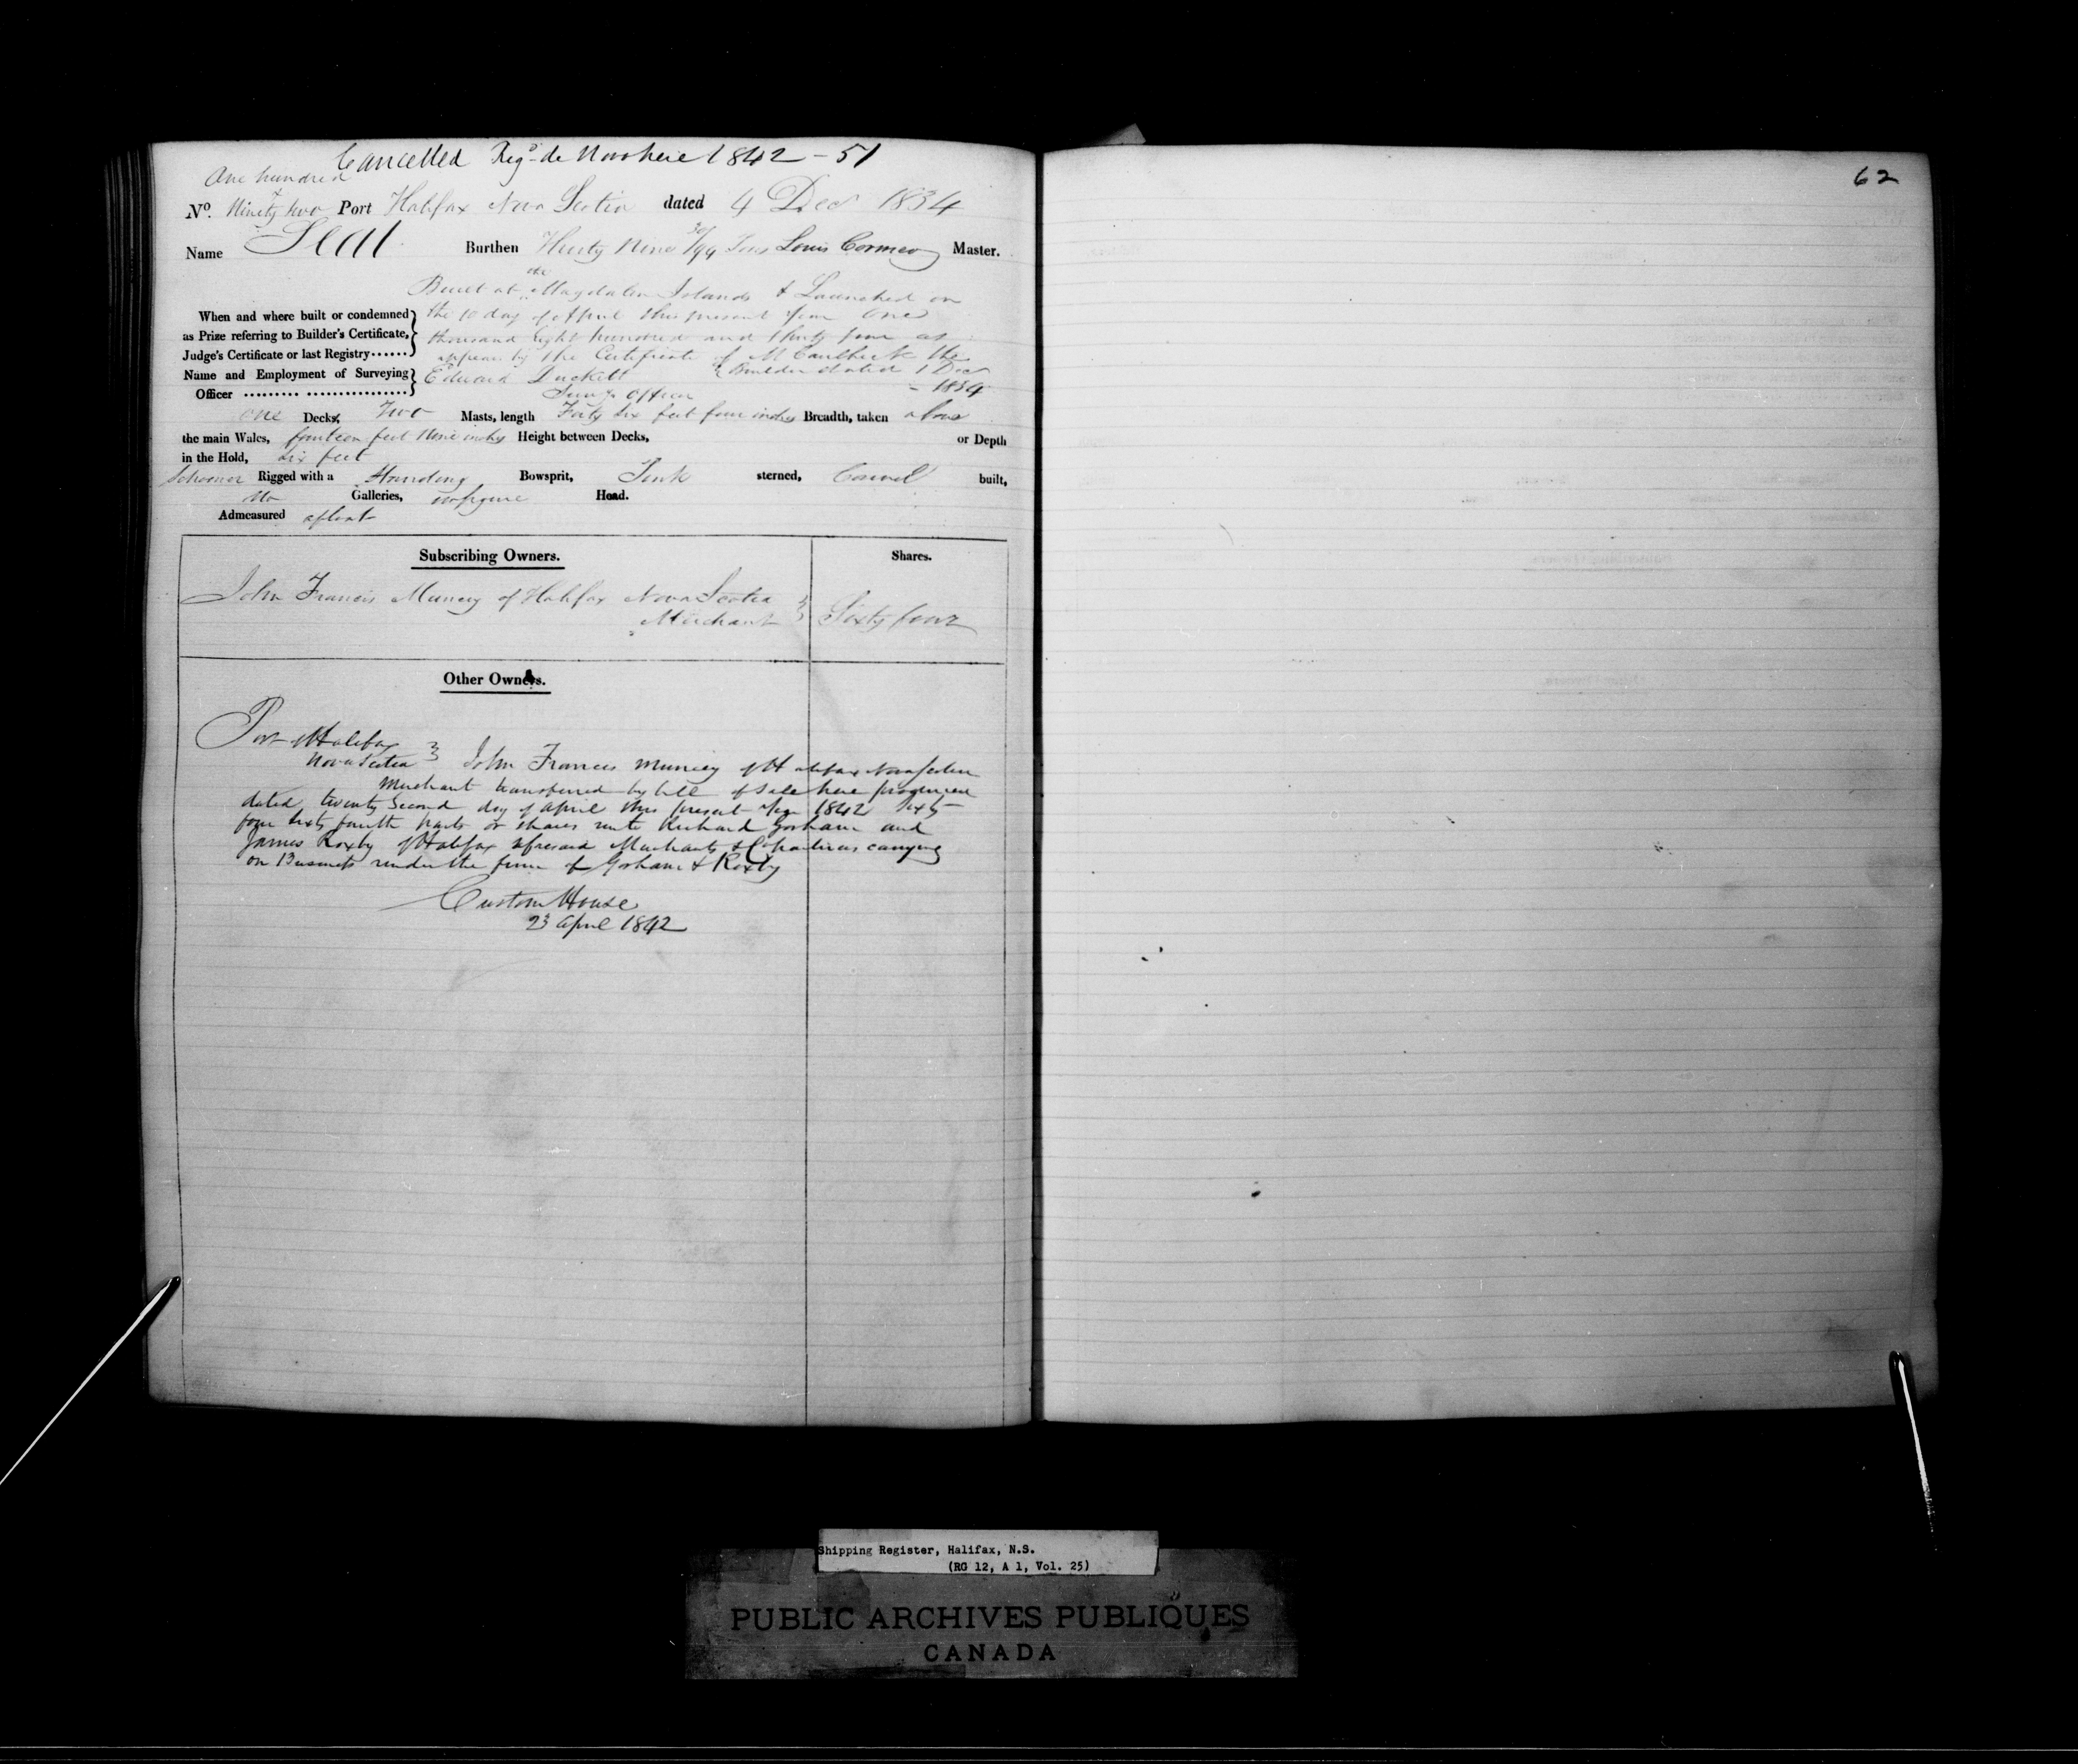 Cancelled Regd de Novo here 1842 – 51
One hundred
No. & Ninety two Port Halifax Nova Scotia dated 4 Decr 1834
Name Seal Burthen Thirty Nine 30/94 Tons Louis Cormeo Master.
Built at the Magdalen Islands & Launched on
When and where built or condemned the 10 day of April this present year One
as Prize referring to Builder's Certificate, thousand Eight hundred and thirty four as
Judge's Certificate or last Registry appears by the Certificate of the
Name and Employment of Surveying Edward Duckett Builder dated 1 Decr
Officer Survg Officer – 1834
One Deck, Two Masts, length Forty six feet four inches Breadth, taken above
the main Wales, fourteen feet Nine inches Height between Decks, or Depth
in the Hold, six feet
Schooner Rigged with a Standing Bowsprit, Pink sterned, Carvel built,
No Galleries, no figure Head.
Admeasured afloat
Subscribing Owners. Shares.
John Francis Muncey of Halifax Nova Scotia
Merchant Sixty four
Other Owners.
Port of Halifax
Nova Scotia John Francis Muncey of Halifax Nova Scotia
Merchant transferred by bill of Sale here produced
dated twenty Second day of April this present year 1842 Sixty
four sixty fourth parts or shares unto Richard Gorham and
James Roxby of Halifax aforesaid Merchants & Copartners carrying
on Business under the firm of Gorham & Roxby
Custom House
23 April 1842
62
Shipping Register, Halifax, N.S.
(RG 12, A 1, Vol. 25)
PUBLIC ARCHIVES PUBLIQUES
CANADA